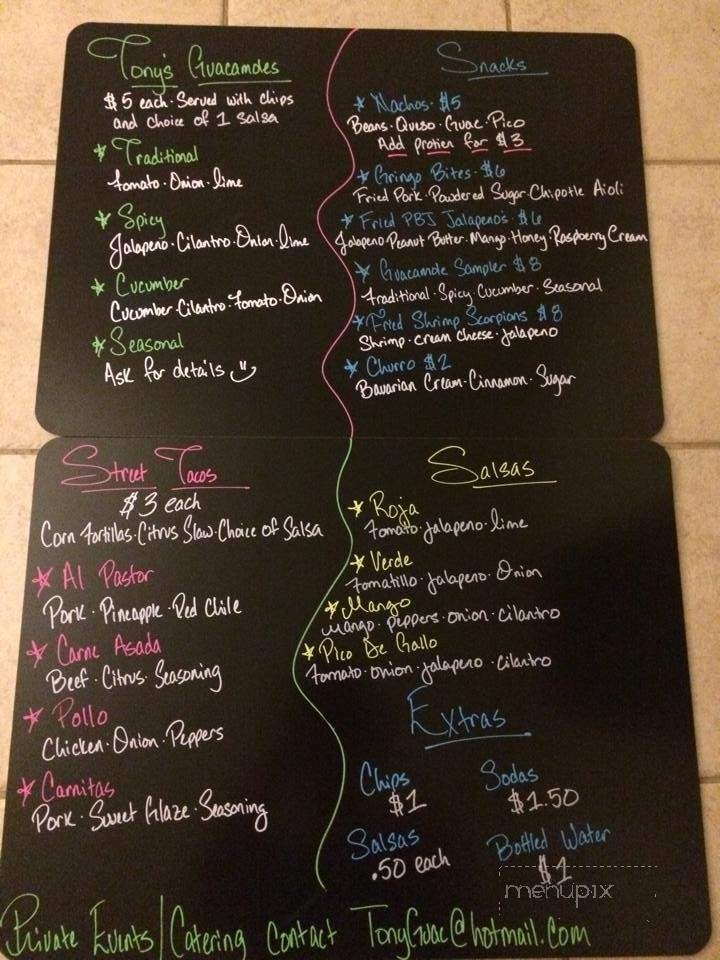 Tony's Guacamoles
$5 each · Served with chips
and choice of 1 salsa
Traditional
Tomato · Onion · lime
Spicy
Jalapeno · Cilantro · Onion · lime
Cucumber
Cucumber · Cilantro · Tomato · Onion
Seasonal
Ask for details
Snacks
Nachos · $5
Beans · Queso · Guac · Pico
Add protien for $3
Gringo Bites · $6
Fried Pork · Powdered Sugar · Chipotle Aioli
Fried PBJ Jalapeno's · $6
Jalapeno Peanut Butter · Mango · Honey · Raspberry Cream
Guacamole Sampler $8
Traditional · Spicy · Cucumber · Seasonal
Fried Shrimp Scorpions $8
Shrimp · cream cheese · jalapeno
Churro $2
Bavarian Cream · Cinnamon · Sugar
Street Tacos
$3 each
Corn Tortillas · Citrus Slaw · Choice of Salsa
Al Pastor
Pork · Pineapple · Red Chile
Carne Asada
Beef · Citrus · Seasoning
Pollo
Chicken · Onion · Peppers
Carnitas
Pork · Sweet Glaze · Seasoning
Salsas
Roja
Tomato · jalapeno · lime
Verde
Tomatillo · jalapeno · Onion
Mango
Mango · peppers · onion · cilantro
Pico De Gallo
Tomato · onion · jalapeno · cilantro
Extras
Chips
$1
Sodas
$1.50
Salsas
.50 each
Bottled Water
$1
menupix
Private Events | Catering Contact TonyGuac@hotmail.com